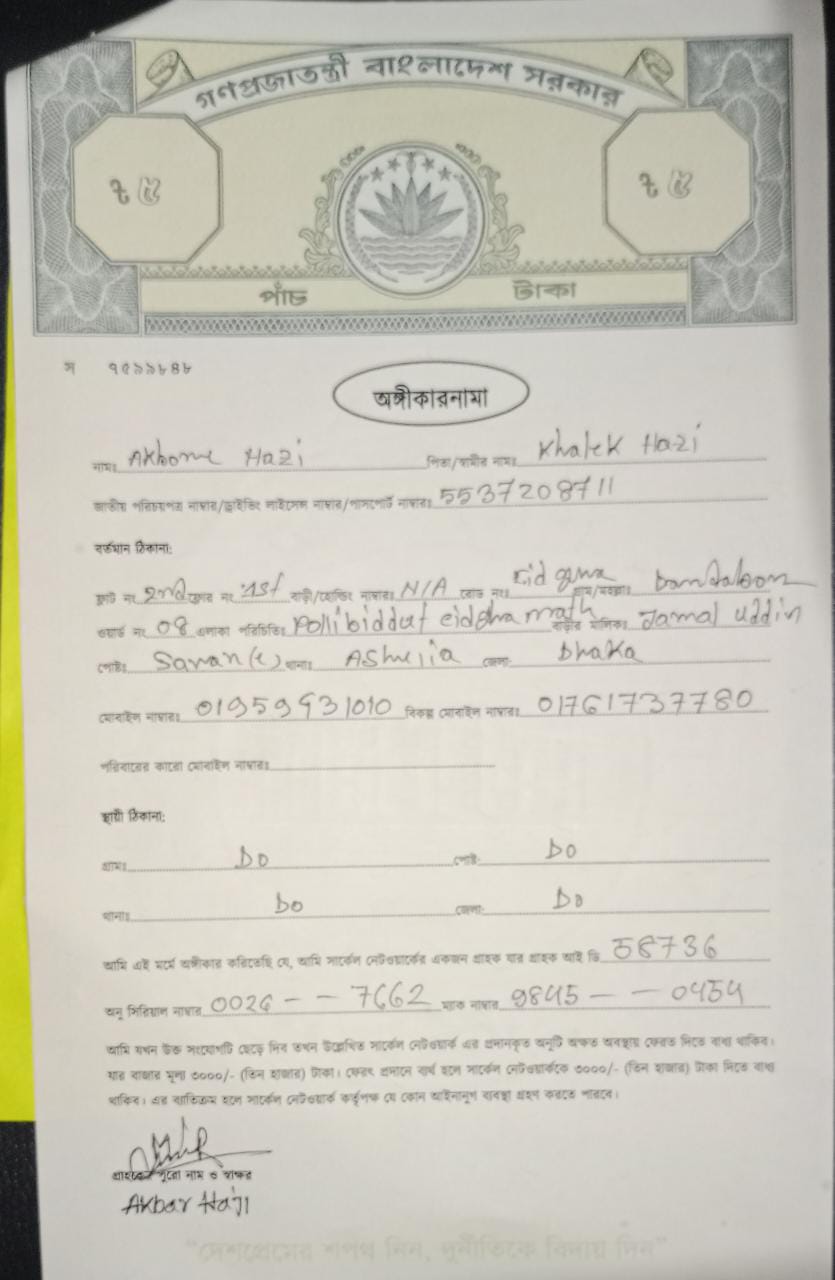 গণপ্রজাতন্ত্রী বাংলাদেশ সরকার
৳ ৫ ৳ ৫
পাঁচ টাকা
স ৭৫৯৯৮৪৮
অঙ্গীকারনামা
নামঃ Akbome Hazi পিতা/স্বামীর নামঃ Khalek Hazi
জাতীয় পরিচয়পত্র নাম্বার/ড্রাইভিং লাইসেন্স নাম্বার/পাসপোর্ট নাম্বারঃ 5537208711
বর্তমান ঠিকানা:
ফ্লাট নং 2nd ফ্লোর নং 1st বাড়ী/হোল্ডিং নাম্বারঃ N/A রোড নংঃ Eid গ্রাম/মহল্লাঃ
ওয়ার্ড নং 08 এলাকা পরিচিতিঃ Pollibiddut eidgha math বাড়ীর মালিকঃ Jamal uddin
পোষ্টঃ Savar থানাঃ জেলা: Dhaka
মোবাইল নাম্বারঃ 01959931010 বিকল্প মোবাইল নাম্বারঃ 01761737780
পরিবারের কারো মোবাইল নাম্বারঃ
স্থায়ী ঠিকানা:
গ্রামঃ Do পোষ্ট: Do
থানাঃ Do জেলা: Do
আমি এই মর্মে অঙ্গীকার করিতেছি যে, আমি সার্কেল নেটওয়ার্কের একজন গ্রাহক যার গ্রাহক আই ডি 58736
অনু সিরিয়াল নাম্বার 0026 - - 7662 ম্যাক নাম্বার 9845 - - 0454
আমি যখন উক্ত সংযোগটি ছেড়ে দিব তখন উল্লেখিত সার্কেল নেটওয়ার্ক এর প্রদানকৃত অনুটি অক্ষত অবস্থায় ফেরত দিতে বাধ্য থাকিব।
যার বাজার মূল্য ৩০০০/- (তিন হাজার) টাকা। ফেরৎ প্রদানে ব্যর্থ হলে সার্কেল নেটওয়ার্ককে ৩০০০/- (তিন হাজার) টাকা দিতে বাধ্য
থাকিব। এর ব্যতিক্রম হলে সার্কেল নেটওয়ার্ক কর্তৃপক্ষ যে কোন আইনানুগ ব্যবস্থা গ্রহণ করতে পারবে।
গ্রাহকের পুরো নাম ও স্বাক্ষর
Akbar Haji
"দেশপ্রেমের শপথ নিন, দুর্নীতিকে বিদায় দিন"